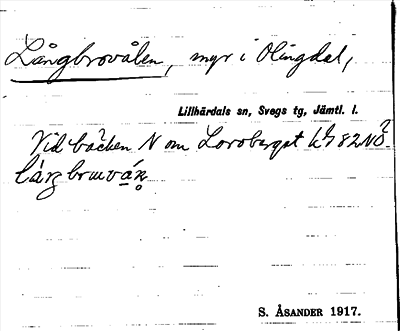 Långbrovålen, myr i Olingdal,
Lillhärdals sn, Svegs tg, Jämtl. l.
Vid bäcken N om Loroberget
S. ÅSANDER 1917.